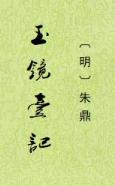 〔明〕朱鼎
玉鏡臺記